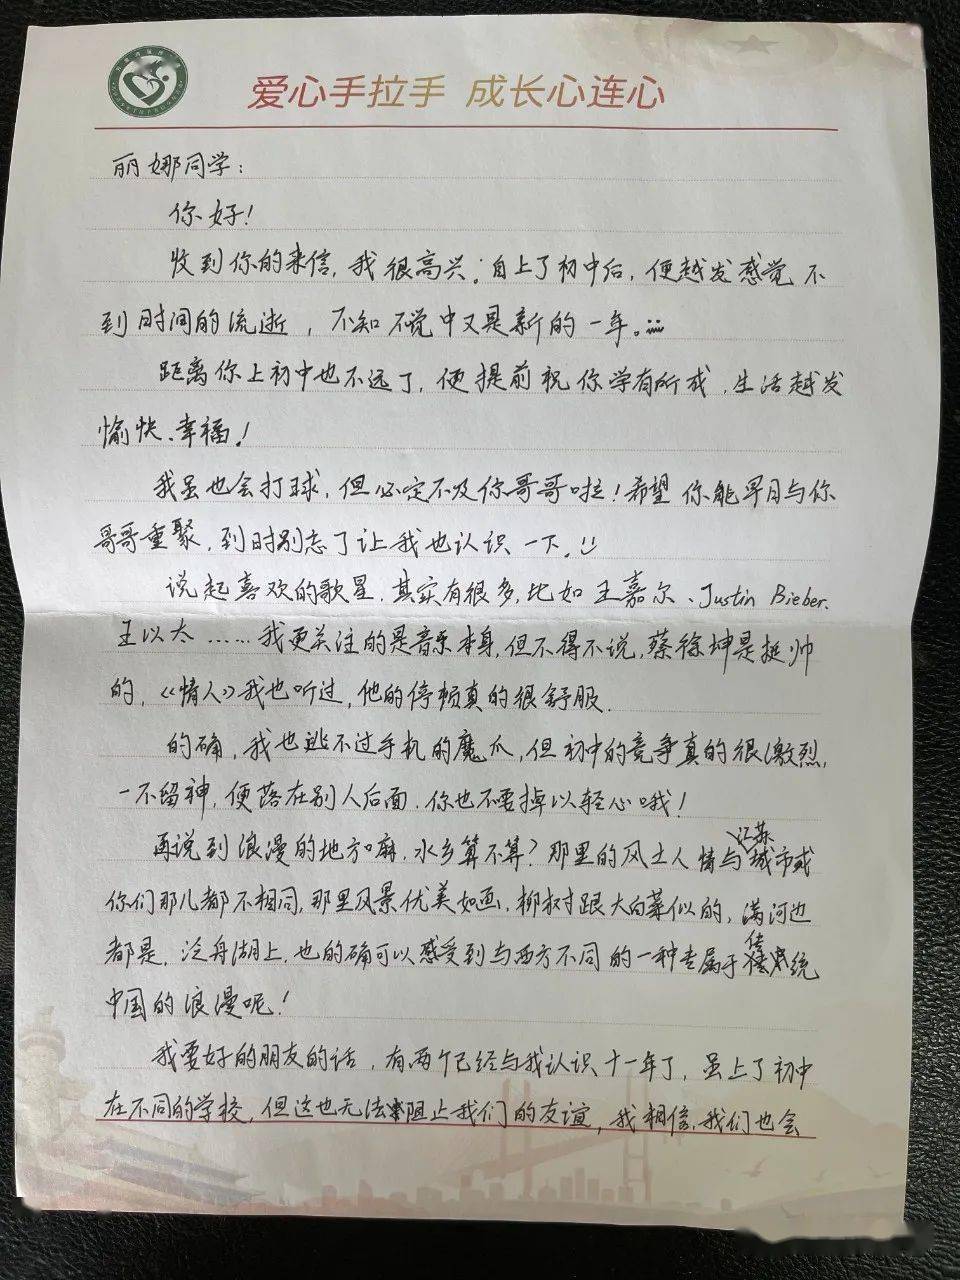 爱心手拉手 成长心连心
丽娜同学：
你好！
收到你的来信，我很高兴。自上了初中后，便越发感觉不
到时间的流逝，不知不觉中又是新的一年。
距离你上初中也不远了，便提前祝你学有所成，生活越发
愉快、幸福！
我虽也会打球，但必定不及你哥哥啦！希望你能早日与你
哥哥重聚，到时别忘了让我也认识一下。
说起喜欢的歌星，其实有很多，比如王嘉尔、Justin Bieber、
王以太……我更关注的是音乐本身，但不得不说，蔡徐坤是挺帅
的，《情人》我也听过，他的停顿真的很舒服。
的确，我也逃不过手机的魔爪，但初中的竞争真的很激烈，
一不留神，便落在别人后面，你也不要掉以轻心哦！
再说到浪漫的地方嘛，水乡算不算？那里的风土人情与江苏城市或
你们那儿都不相同，那里风景优美如画，柳树跟大白菜似的，满河边
都是，泛舟湖上，也的确可以感受到与西方不同的一种专属于传统
中国的浪漫呢！
我要好的朋友的话，有两个已经与我认识十一年了，虽上了初中
在不同的学校，但这也无法阻止我们的友谊，我相信，我们也会